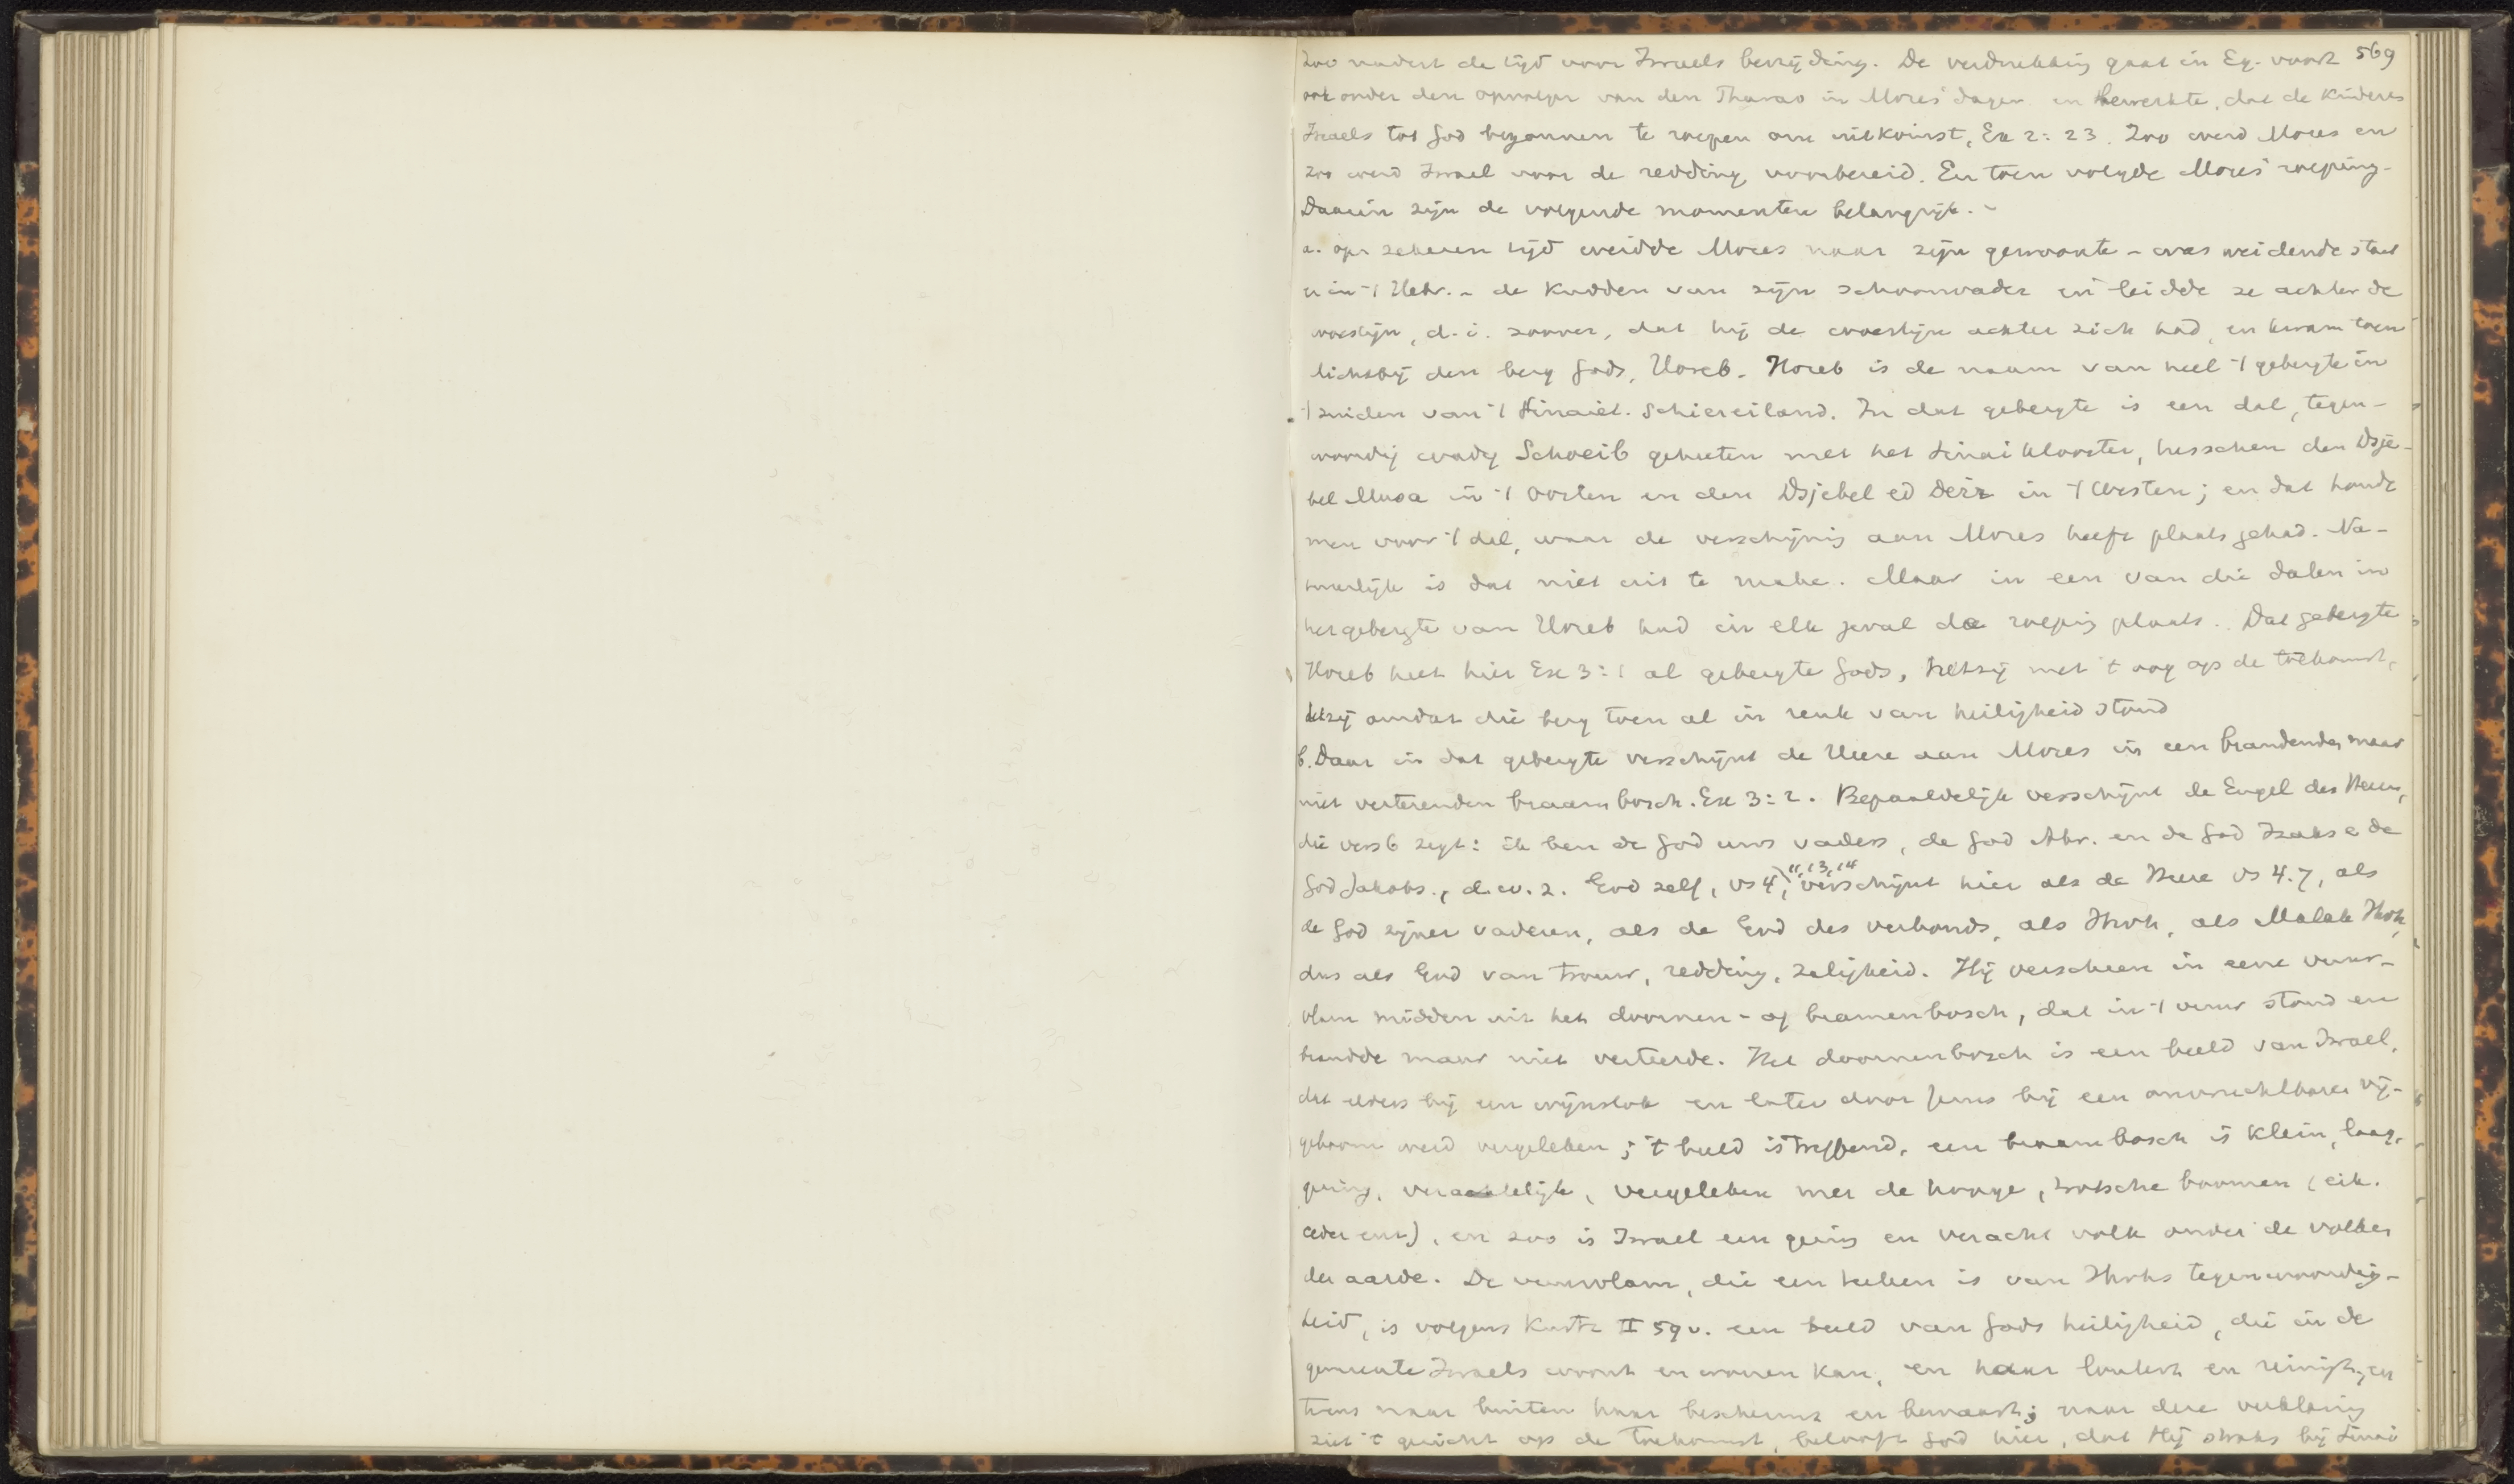 Zoo nadert de tijd voor Israels bevrijding. De verdrukking gaat in Eg. voort 569
ook onder den opvolger van den Pharao in Mozes' dagen en bewerkte, dat de kinderen
Israels tot God begonnen te roepen om uitkomst, Ex 2:23. Zoo werd Mozes en
zoo werd Israel voor de redding voorbereid. En toen volgde Mozes' roeping.
Daarin zijn de volgende momenten belangrijk. -
a. op zekeren tijd weidde Mozes naar zijn gewoonte - was weidende staat
er in 't Hebr. - de kudden van zijn schoonvader en leidde ze achter de
woestijn, d.i. zoover, dat hij de woestijn achter zich had, en kwam toen
dichtbij den berg Gods, Horeb. Horeb is de naam van heel 't gebergte in
't zuiden van 't Sinaiet. Schiereiland. In dat gebergte is een dal, tegen-
woordig wady Schoeib geheeten met het Sinaiklooster, tusschen den Dsje-
bel Musa in 't oosten en den Dsjebel ed Deir in 't Westen; en dat houdt
men voor 't dal, waar de verschijning aan Mozes heeft plaats gehad. Na-
tuurlijk is dat niet uit te make. Maar in een van die dalen in
het gebergte van Horeb had in elk geval de roeping plaats. Dat gebergte
Horeb heet hier Ex 3:1 al gebergte Gods, hetzij met 't oog op de toekomst,
hetzij omdat die berg toen al in reuk van heiligheid stond
b. Daar in dat gebergte verschijnt de Heere aan Mozes in een brandenden maar
niet verterenden braambosch. Ex 3:2. Bepaaldelijk verschijnt de Engel des Heeren,
die vers 6 zegt: ik ben de God uws vaders, de God Abr. en de God Izaks e de
God Jakobs., d.w.z. God zelf, vs 4, 11, 13, 14 verschijnt hier als de Heere vs 4.7, als
de God zijner vaderen, als de God des verbonds, als Jhvh, als Malak Jhvh,
dus als God van trouw, redding, zaligheid. Hij verscheen in eene vuur-
vlam midden uit het doornen- of bramenbosch, dat in 't vuur stond en
brandde maar niet verteerde. Het doornenbosch is een beeld van Israel,
dat elders bij een wijnstok en later door Jezus bij een onvruchtbaren vij-
geboom werd vergeleken; 't beeld is treffend, een braambosch is klein, laag,
gering, verachtelijk, vergeleken met de hooge, trotsche boomen (eik.
ceder enz), en zoo is Israel een gering en veracht volk onder de volken
der aarde. De vuurvlam, die een teeken is van Jhvhs tegenwoordig-
heid, is volgens Kurtz II 59v. een beeld van Gods heiligheid, die in de
gemeente Israels woont en wonen kan, en haar loutert en reinigt, en
tevens naar buiten haar beschermt en bewaart; naar deze verklaring
ziet 't gezicht op de toekomst, belooft God hier, dat Hij straks bij Sinai